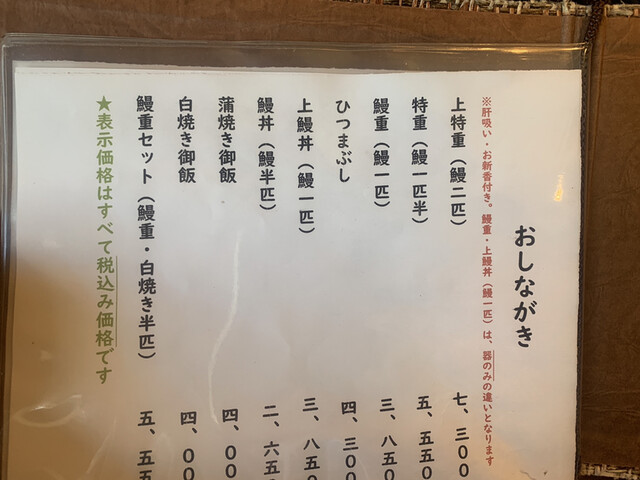 おしながき
※肝吸い・お新香付き。鰻重・上鰻丼（鰻一匹）は、器のみの違いとなります
上特重（鰻二匹） 七、三〇〇
特重（鰻一匹半） 五、五五〇
鰻重（鰻一匹） 三、八五〇
ひつまぶし 四、三〇〇
上鰻丼（鰻一匹） 三、八五〇
鰻丼（鰻半匹） 二、六五〇
蒲焼き御飯 四、〇〇
白焼き御飯 四、〇〇
鰻重セット（鰻重・白焼き半匹） 五、五五
★表示価格はすべて税込み価格です